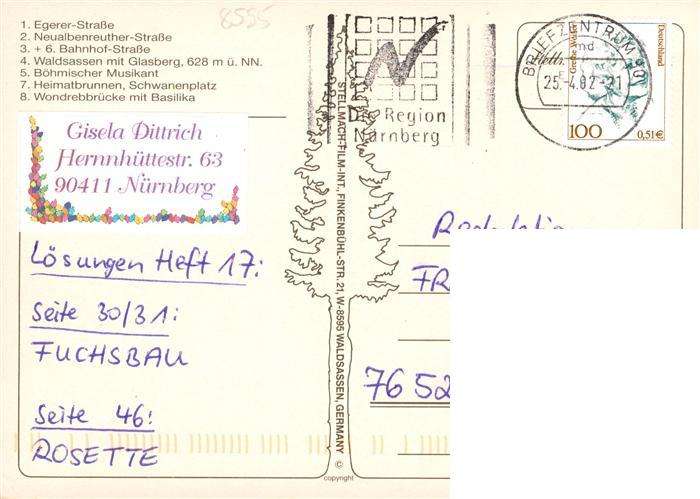 8595
1. Egerer-Straße
2. Neualbenreuther-Straße
3. + 6. Bahnhof-Straße
4. Waldsassen mit Glasberg, 628 m ü. NN.
5. Böhmischer Musikant
7. Heimatbrunnen, Schwanenplatz
8. Wondrebbrücke mit Basilika
Gisela Dittrich
Hernnhüttestr. 63
90411 Nürnberg
Lösungen Heft 17:
Seite 30/31:
FUCHSBAU
Seite 46:
ROSETTE
STELLMACH-FILM-INT., FINKENBÜHL-STR. 21, W-8595 WALDSASSEN, GERMANY ©
copyright
Die Region
Nürnberg
BRIEFZENTRUM 90
md
25.-4.02-21
Deutschland
100
0,51€
FR
76 52